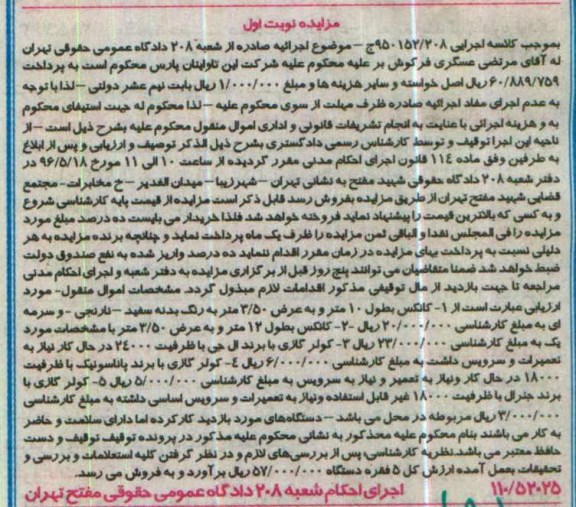 مزایده نوبت اول
بموجب کلاسه اجرایی ۹۵۰۱۵۲/۲۰۸ج – موضوع اجرائیه صادره از شعبه ۲۰۸ دادگاه عمومی حقوقی تهران
له آقای مرتضی عسگری فرکوش بر علیه محکوم علیه شرکت این تاوایتان پارس محکوم است به پرداخت
۶۰/۸۸۹/۷۵۹ ریال اصل خواسته و سایر هزینه ها و مبلغ ۱/۰۰۰/۰۰۰ ریال بابت نیم عشر دولتی – لذا با توجه
به عدم اجرای مفاد اجرائیه صادره ظرف مهلت از سوی محکوم علیه – لذا محکوم له جهت استیفای محکوم
به و هزینه اجرائی با عنایت به انجام تشریفات قانونی و اداری اموال منقول محکوم علیه بشرح ذیل است – از
ناحیه این اجرا توقیف و توسط کارشناس رسمی دادگستری بشرح ذیل الذکر توصیف و ارزیابی و پس از ابلاغ
به طرفین وفق ماده ۱۱۴ قانون اجرای احکام مدنی مقرر گردیده از ساعت ۱۰ الی ۱۱ مورخ ۹۶/۵/۱۸ در
دفتر شعبه ۲۰۸ دادگاه حقوقی شهید مفتح به نشانی تهران – شهرزیبا – میدان الغدیر – خ مخابرات – مجتمع
قضایی شهید مفتح تهران از طریق مزایده بفروش رسد قابل ذکر است مزایده از قیمت پایه کارشناسی شروع
و به کسی که بالاترین قیمت را پیشنهاد نماید فروخته خواهد شد فلذا خریدار می بایست ده درصد مبلغ مورد
مزایده را فی المجلس نقدا و الباقی ثمن مزایده را ظرف یک ماه پرداخت نماید و چنانچه برنده مزایده به هر
دلیلی نسبت به پرداخت بهای مزایده در زمان مقرر اقدام ننماید ده درصد واریز شده به نفع صندوق دولت
ضبط خواهد شد ضمنا متقاضیان می توانند پنج روز قبل از برگزاری مزایده به دفتر شعبه و اجرای احکام مدنی
مراجعه تا جهت بازدید از مال توقیفی مذکور اقدامات لازم مبذول گردد. مشخصات اموال منقول – مورد
ارزیابی عبارت است از ۱- کانکس بطول ۱۰ متر و به عرض ۳/۵۰ متر به رنگ بدنه سفید – نارنجی – و سرمه
ای به مبلغ کارشناسی ۲۰/۰۰۰/۰۰۰ ریال ۲- کانکس بطول ۱۲ متر و به عرض ۳/۵۰ متر با مشخصات مورد
یک به مبلغ کارشناسی ۲۳/۰۰۰/۰۰۰ ریال ۳- کولر گازی با برند ال جی با ظرفیت ۲۴۰۰۰ در حال کار نیاز به
تعمیرات و سرویس داشت به مبلغ کارشناسی ۶/۰۰۰/۰۰۰ ریال ٤- کولر گازی با برند پاناسونیک با ظرفیت
۱۸۰۰۰ در حال کار ونیاز به تعمیر و نیاز به سرویس به مبلغ کارشناسی ۵/۰۰۰/۰۰۰ ریال ۵- کولر گازی با
برند جنرال با ظرفیت ۱۸۰۰۰ غیر قابل استفاده ونیاز به تعمیرات و سرویس اساسی داشته به مبلغ کارشناسی
۳/۰۰۰/۰۰۰ ریال مربوطه در محل می باشد – دستگاه‌های مورد بازدید کارکرده اما دارای سلامت و حاضر
به کار می باشند بنام محکوم علیه محذکور به نشانی محکوم علیه مذکور در پرونده توقیف توقیف و دست
حافظ معتبر می باشد. نظریه کارشناسی، پس از بررسی‌های لازم و در نظر گرفتن کلیه استعلامات و بررسی و
تحقیقات بعمل آمده ارزش کل ۵ فقره دستگاه ۵۷/۰۰۰/۰۰۰ ریال برآورد و به فروش می رسد.
۱۱۰/۵۲۰۲۵ اجرای احکام شعبه ۲۰۸ دادگاه عمومی حقوقی مفتح تهران